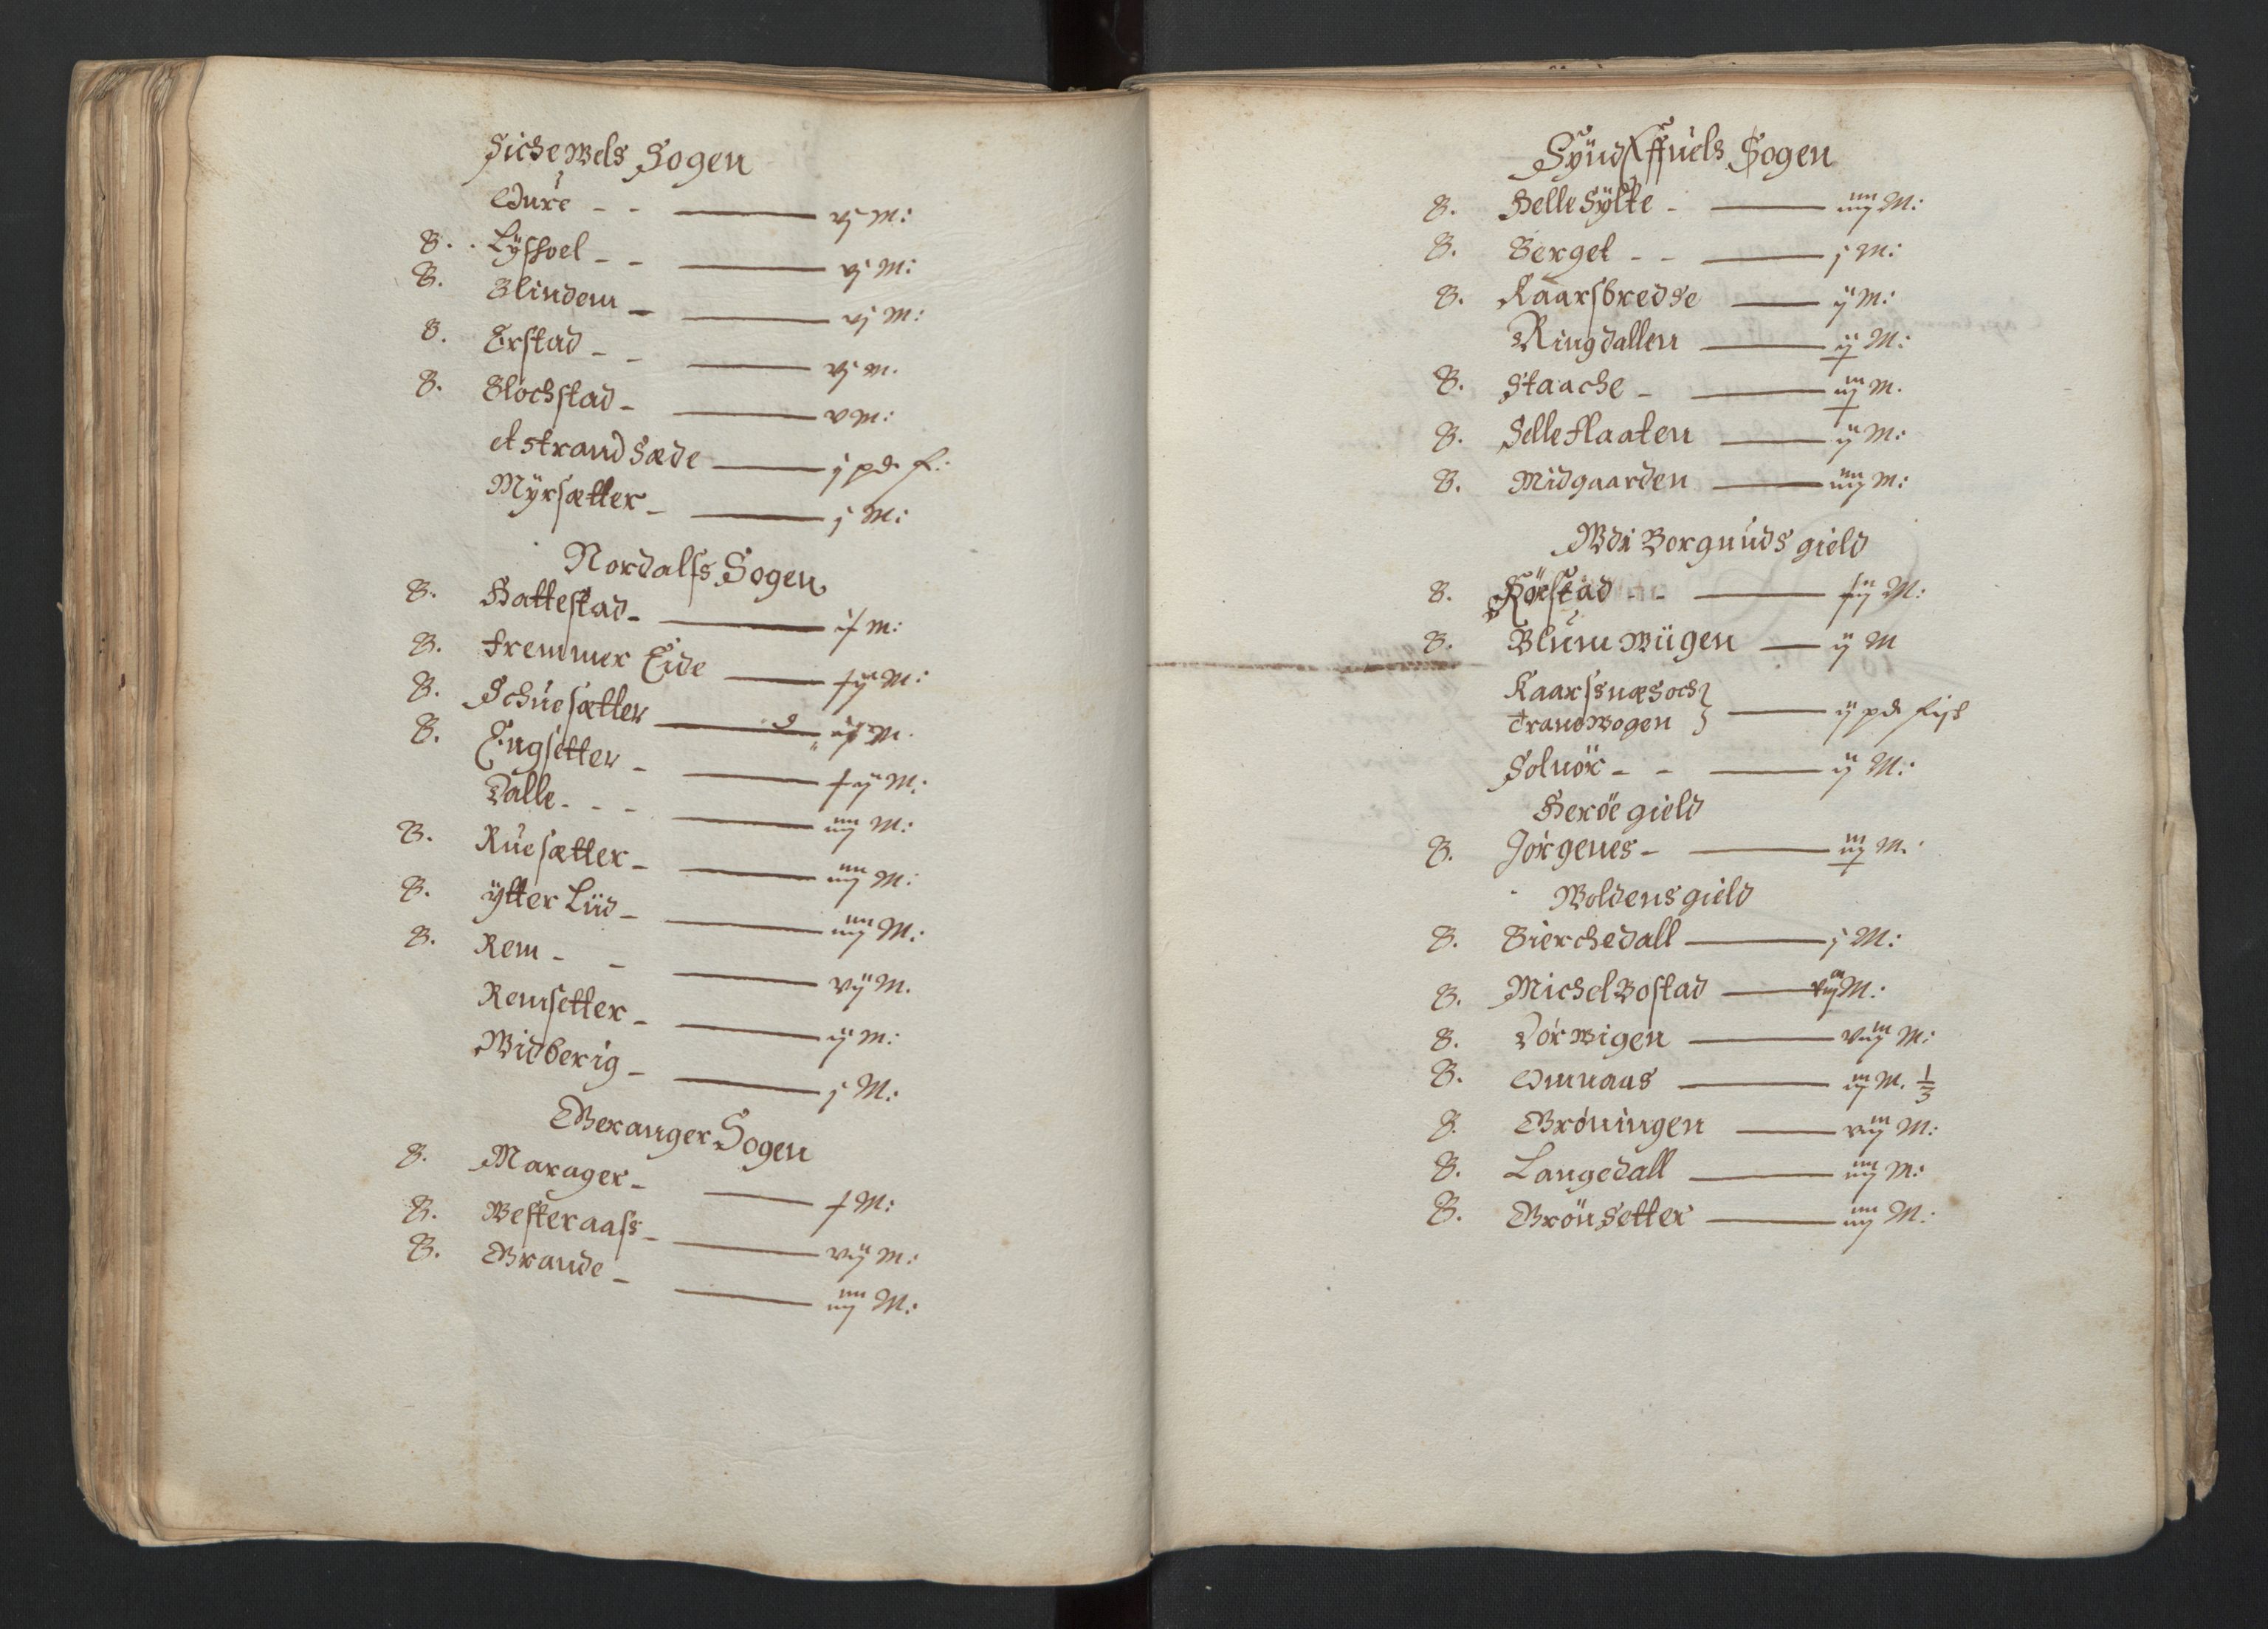 Sichewels Sogen
Aure - - — M:
B. Lysthoel - - — M:
B. Blindem - — M:
B. Erstad - - — M.
B. Blochstad - — v M:
et strandsæde — j pd f:
Myrsætter - — j M:
Nordalss Sogen
B. Hattestad - — M:
B. Fremmer Eide — M:
B. Schuesætter — M.
B. Engsetter - — M:
Dalle - - - — iiij M:
B. Ruesætter - — iiij M:
B. ytter Liid - — iiij M:
B. Rem - - — vij M.
Remsetter - — ij M:
Widberig - — j M:
Geranger Sogen
B. Marager - — M:
B. Westeraass - — vij M:
B. Grande - — iiij M:
Syndlffuels Sogen
B. Hellesylte - — iiij M:
B. Berget - - — j M:
B. Kaarsbredhe — ij M:
Ringdallen — ij M:
B. Staache - — iij M.
B. Selleflaaten — ij M:
B. Midgaarden — iiij M:
Wdi Borgunds gield
B. Røestad - - — M:
B. Blumwiigen — ij M
Kaarssnæs och
Trandwogen } — ij pd fisk
Soluör - - — ij M:
Herøe gield
B. Jörgenes - — iij M.
Woldens gield
B. Bierchedall — j M:
B. Michelbostad — viij M:
B. Dörwigen — viij M:
B. Amnaas — iij M. 1/3
B. Grøningen — viij M:
B. Langedall — iiij M:
B. Grönsetter — iiij M: